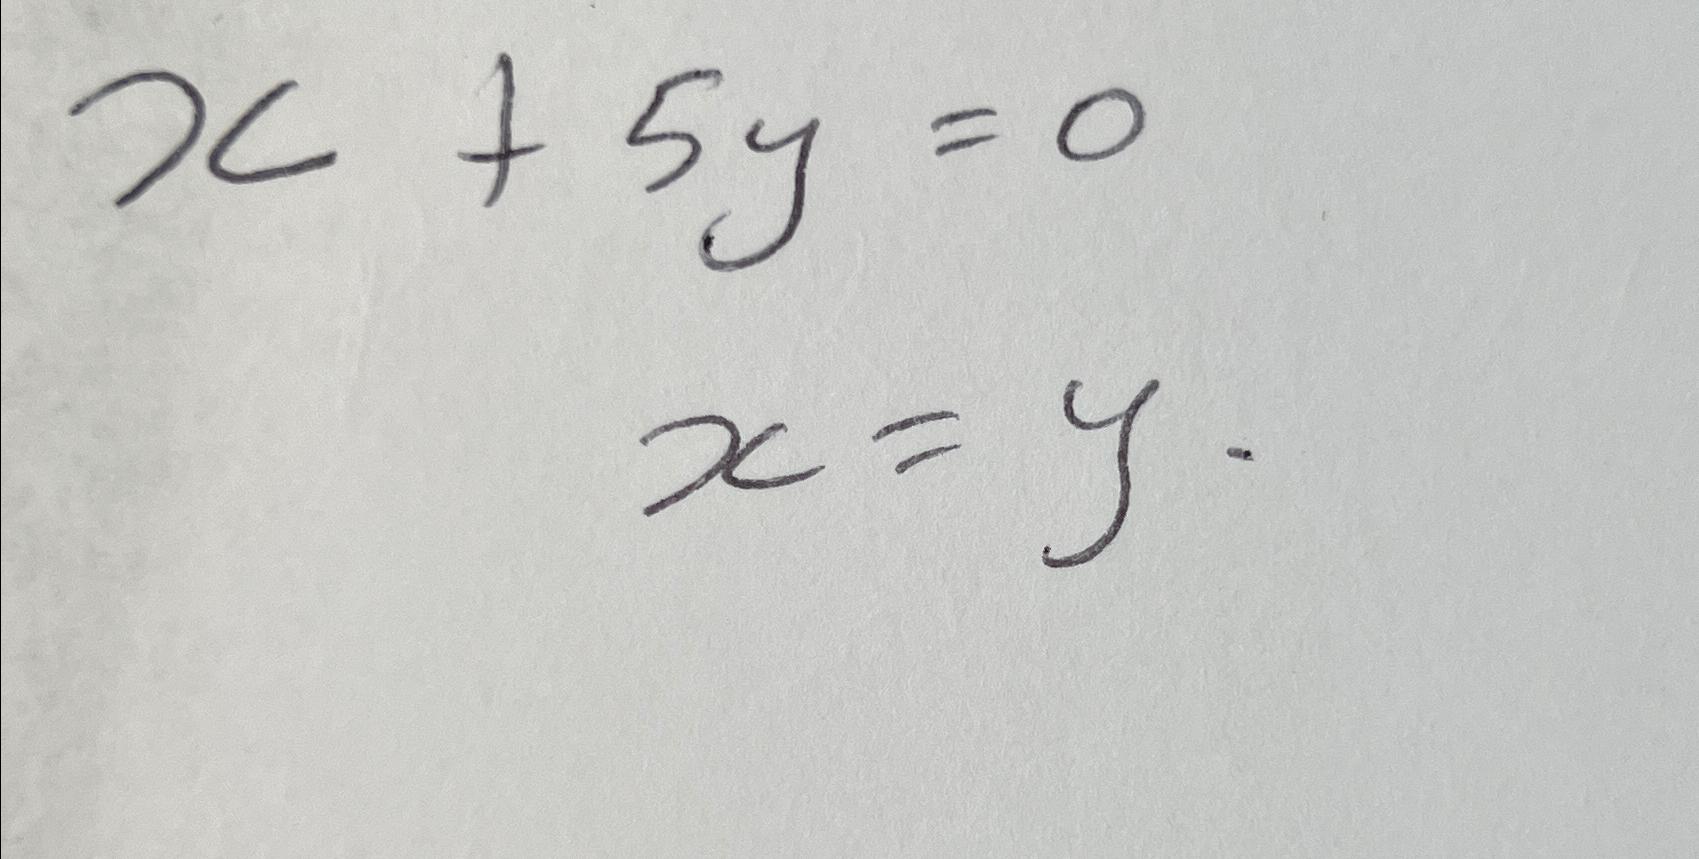 x + 5y = 0
x = y.